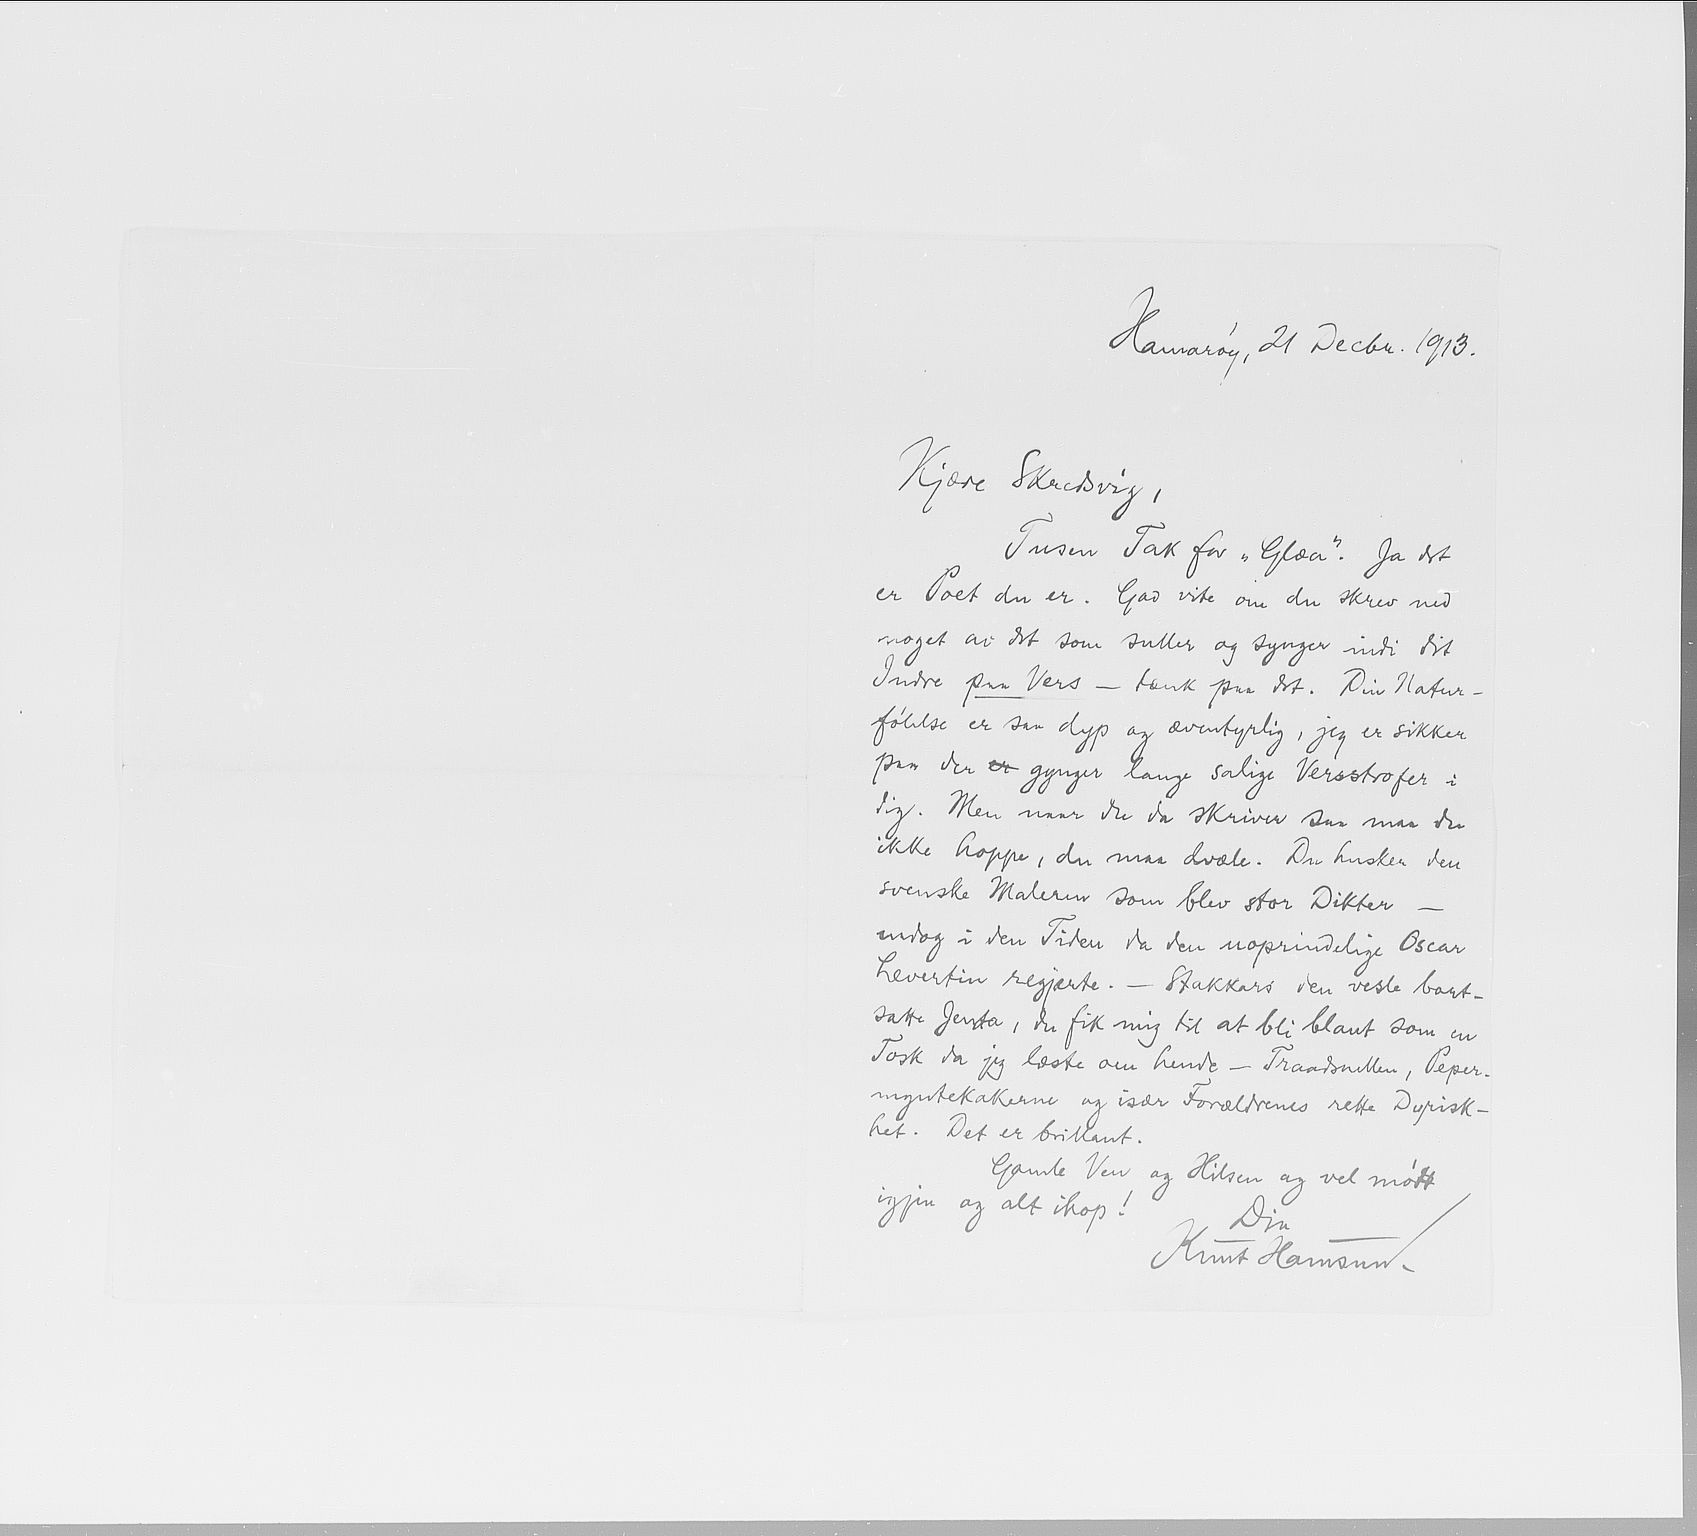 Hamarøy, 21 Decbr. 1913.
Kjære Skredsvig,
Tusen Tak for „Glæa". Ja det
er Poet du er. Gad vite om du skrev ned
noget av det som suller og synger indi dit
Indre paa Vers — tænk paa det. Din Natur-
følelse er saa dyp og æventyrlig, jeg er sikker
paa der er gynger lange salige Versstrofer i
dig. Men naar du da skriver saa maa du
ikke hoppe, du maa dvæle. Du husker den
svenske Maleren som blev stor Dikter —
endog i den Tiden da den uoprindelige Oscar
Levertin regjerte. — Stakkars den vesle bort-
satte Jenta, du fik mig til at bli blaut som en
Tosk da jeg læste om hende — Traadsnellen, Peper-
myntekakerne og især Forældrenes rette Dyrisk-
het. Det er brillant.
Gamle Ven og Hilsen og vel møtt
igjen og alt ihop!
Din
Knut Hamsun.